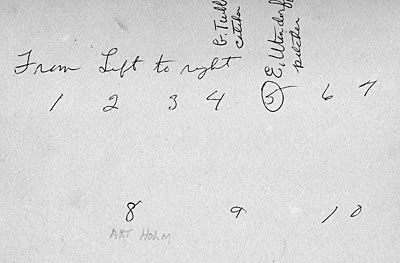 G. Tull
catcher
E. Utendorf
pitcher
From Left to right
1 2 3 4 5 6 7
8 9 10
ART HOLM